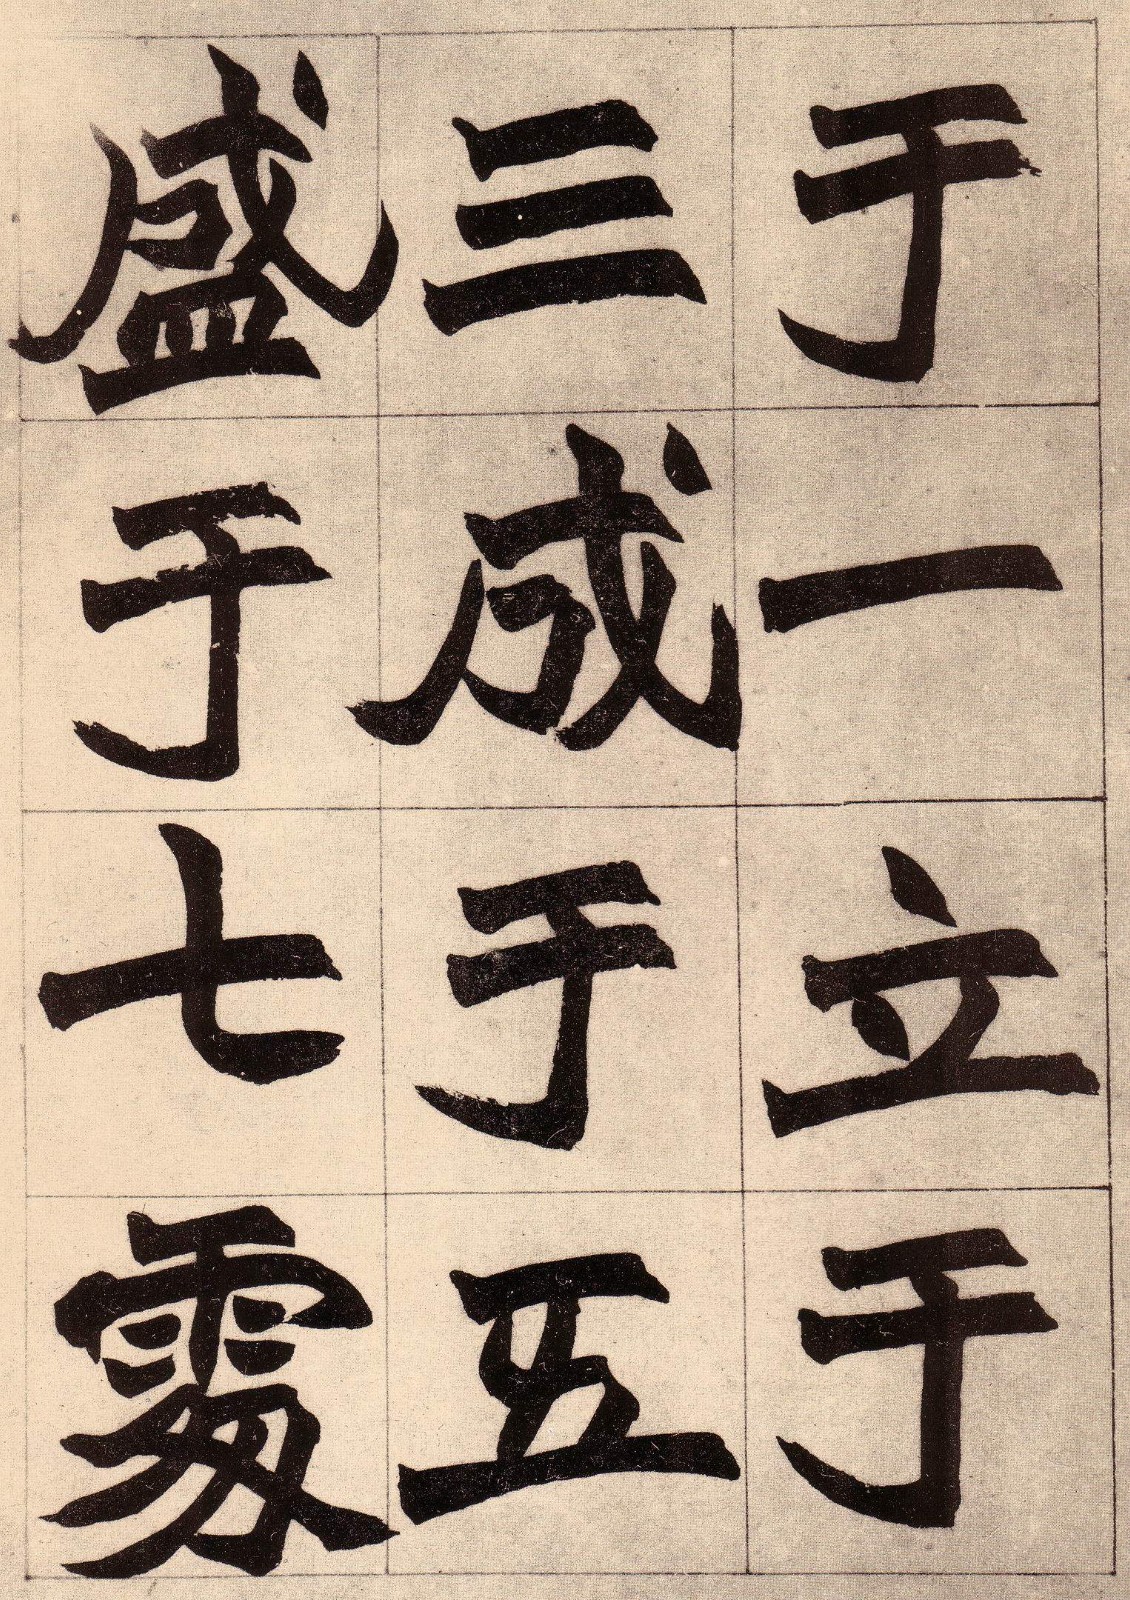 于一立于
三成于五
盛于七處